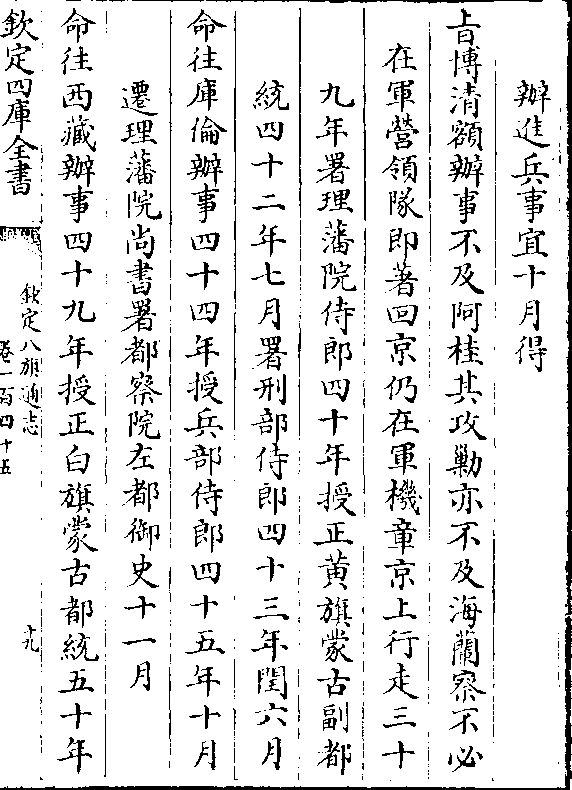 辦進兵事宜十月得
㫖博清額辦事不及阿桂其攻勦亦不及海蘭察不必
在軍營領隊即著回京仍在軍機章京上行走三十
九年署理藩院侍郎四十年授正黄旗蒙古副都
統四十二年七月署刑部侍郎四十三年閏六月
命往庫倫辦事四十四年授兵部侍郎四十五年十月
遷理藩院尚書署都察院左都御史十一月
命往西藏辦事四十九年授正白旗蒙古都統五十年
欽定四庫全書
欽定八旗通志
卷一百四十五
十九